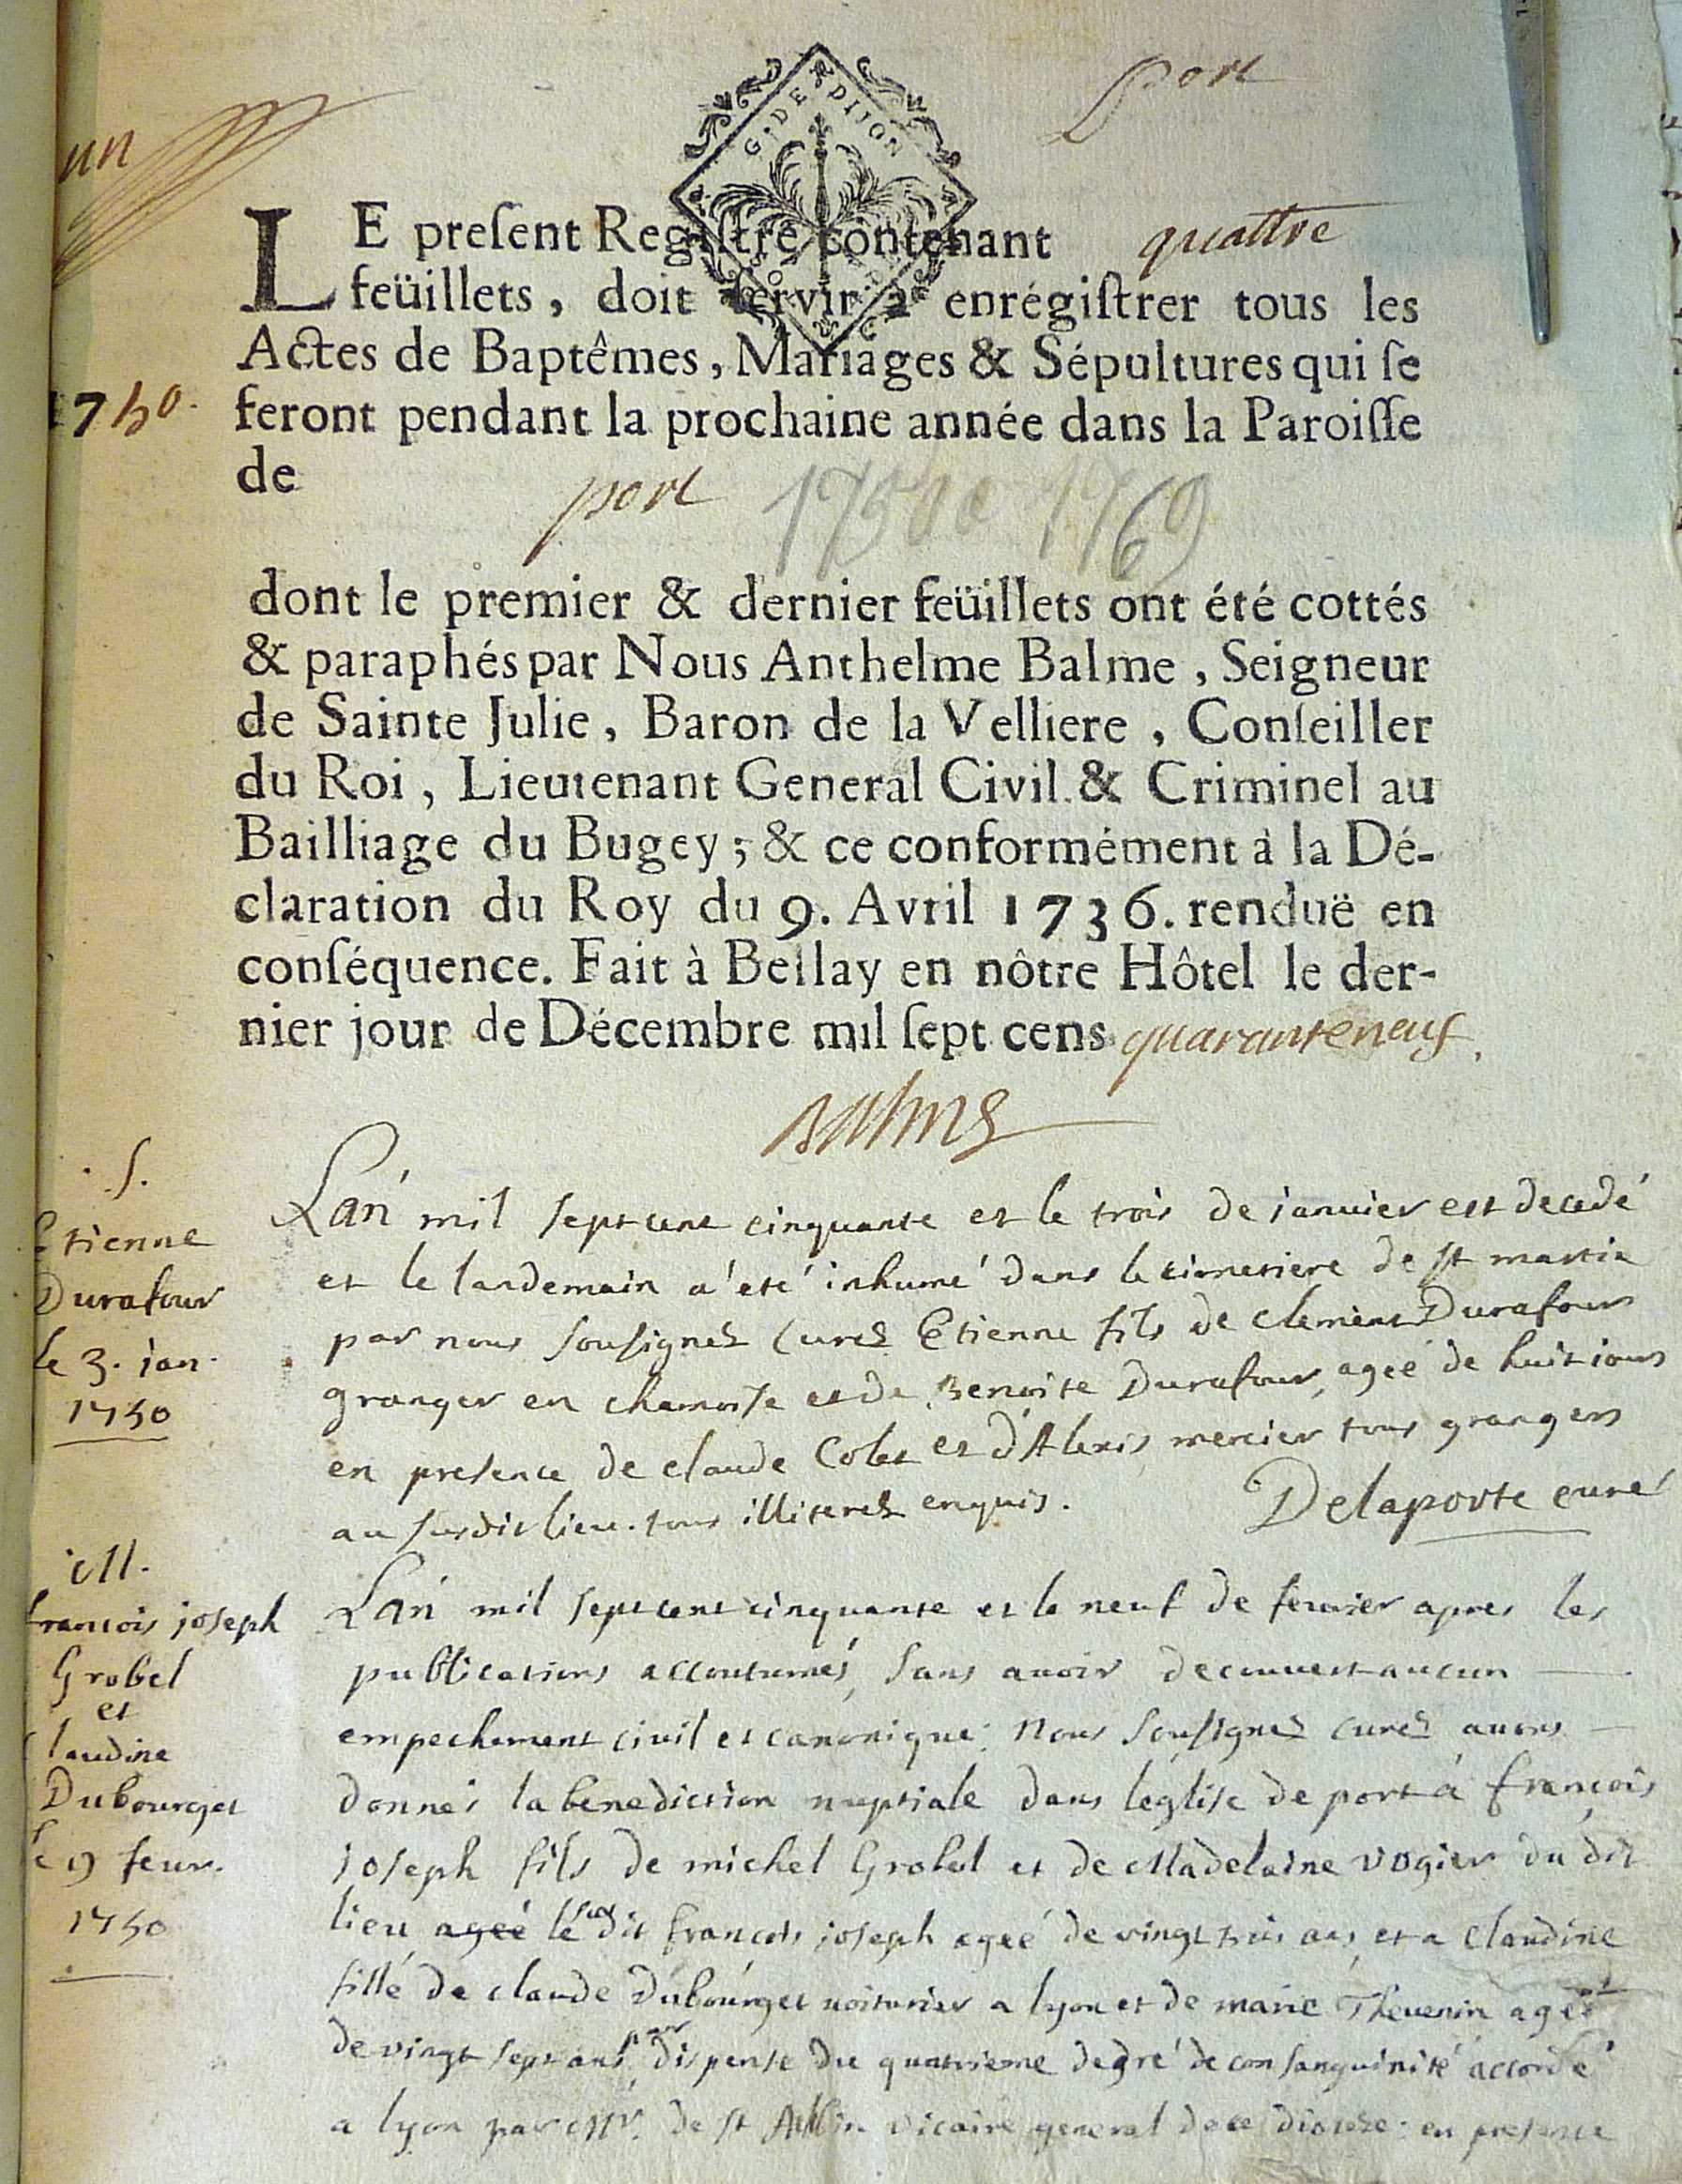 un
Port
G. DE DIJON
LE preſent Regiſtre contenant quattre
feüillets, doit ſervir à enrégiſtrer tous les
Actes de Baptêmes, Mariages & Sépultures qui ſe
1750. feront pendant la prochaine année dans la Paroiſſe
de
port 1750 a 1769
dont le premier & dernier feüillets ont été cottés
& paraphés par Nous Anthelme Balme, Seigneur
de Sainte Julie, Baron de la Velliere, Conſeiller
du Roi, Lieutenant General Civil & Criminel au
Bailliage du Bugey; & ce conformément à la Dé-
claration du Roy du 9. Avril 1736. renduë en
conſéquence. Fait à Bellay en nôtre Hôtel le der-
nier jour de Décembre mil ſept cens quaranteneuf.
Balme
S.
Etienne
Durafour
le 3. jan.
1750
Lan mil septcent cinquante et le trois de ianuier est decedé
et le landemain a été inhumé dans le cimetiere de St martin
par nous sousignez Curez Etienne fils de clement Durafour
granger en chamoise et de Benoite Durafour, ageé de huit iours
en presence de claude Colet et d'Alexis mercier tous grangers
au susdit lieu. tous illiterez enquis. Delaporte curé
M.
francois joseph
Grobel
et
Claudine
Dubourget
le 9 feur.
1750
Lan mil septcent cinquante et le neuf de feurier apres les
publications accoutumés, sans auoir decouuert aucun
empechement ciuil et canonique: Nous sousignez curez auons
donnés la benediction nuptiale dans léglise de port á françois
joseph fils de michel Grobel et de Madelaine vogier du dit
lieu ageé le susdit francois joseph ageé de vingt trois ans, et a Claudine
fillé de claude Dubourget uoiturier a lyon et de marie Theuenin ageé
de vingt sept ans, par dispense du quatrieme degré de consanguinité accordé
a lyon par Mr. de St Aubin vicaire general de ce diocese: en presence